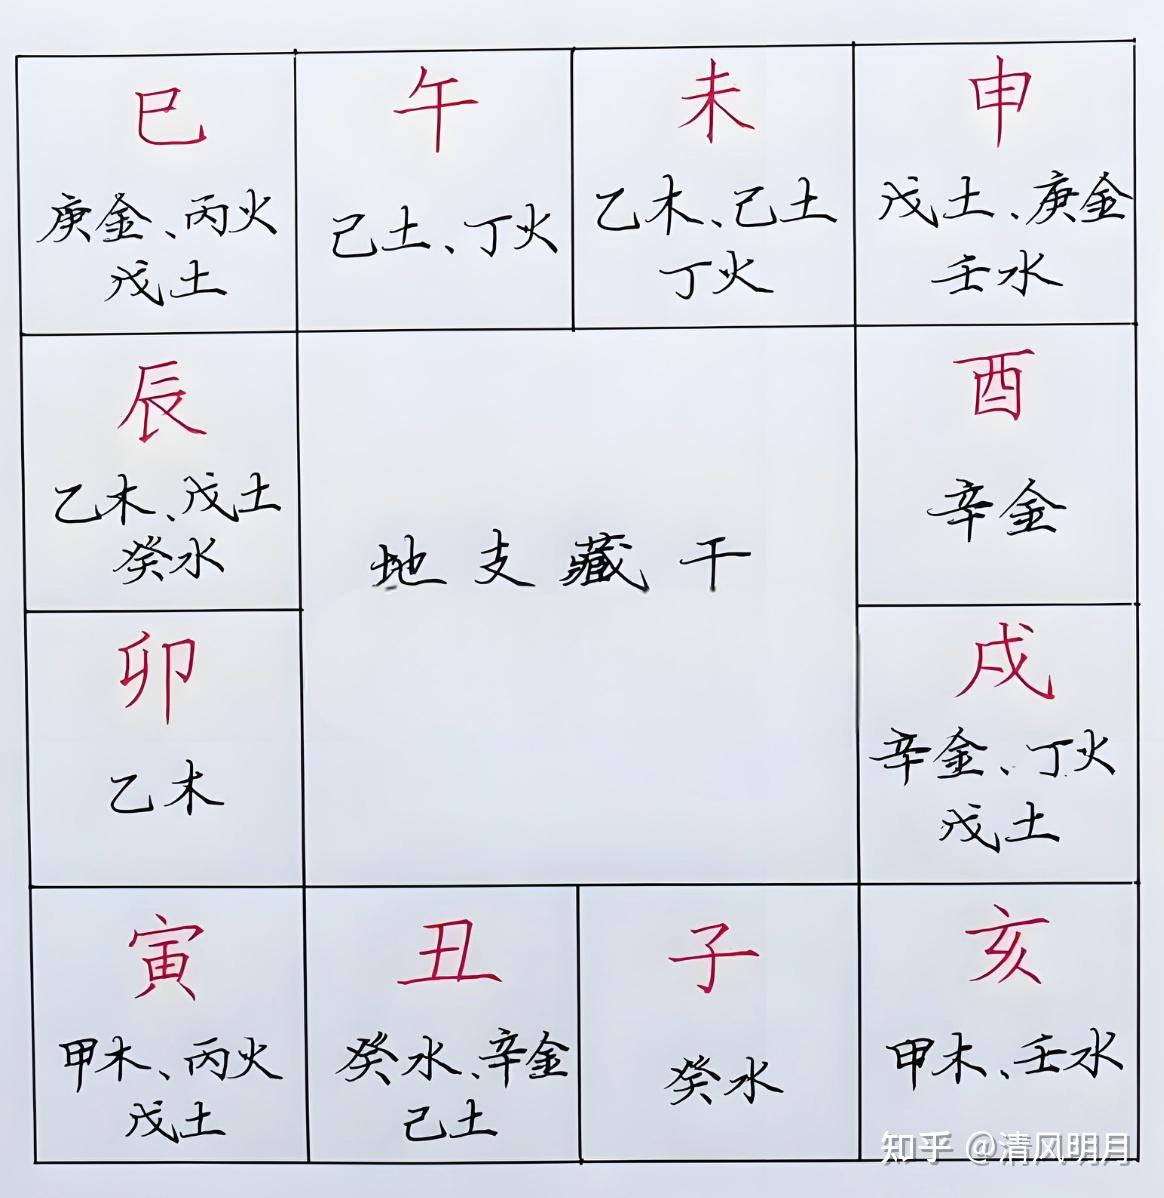 巳
庚金、丙火
戊土
午
己土、丁火
未
乙木、己土
丁火
申
戊土、庚金
壬水
辰
乙木、戊土
癸水
酉
辛金
地支藏干
卯
乙木
戌
辛金、丁火
戊土
寅
甲木、丙火
戊土
丑
癸水、辛金
己土
子
癸水
亥
甲木、壬水
知乎 @清风明月